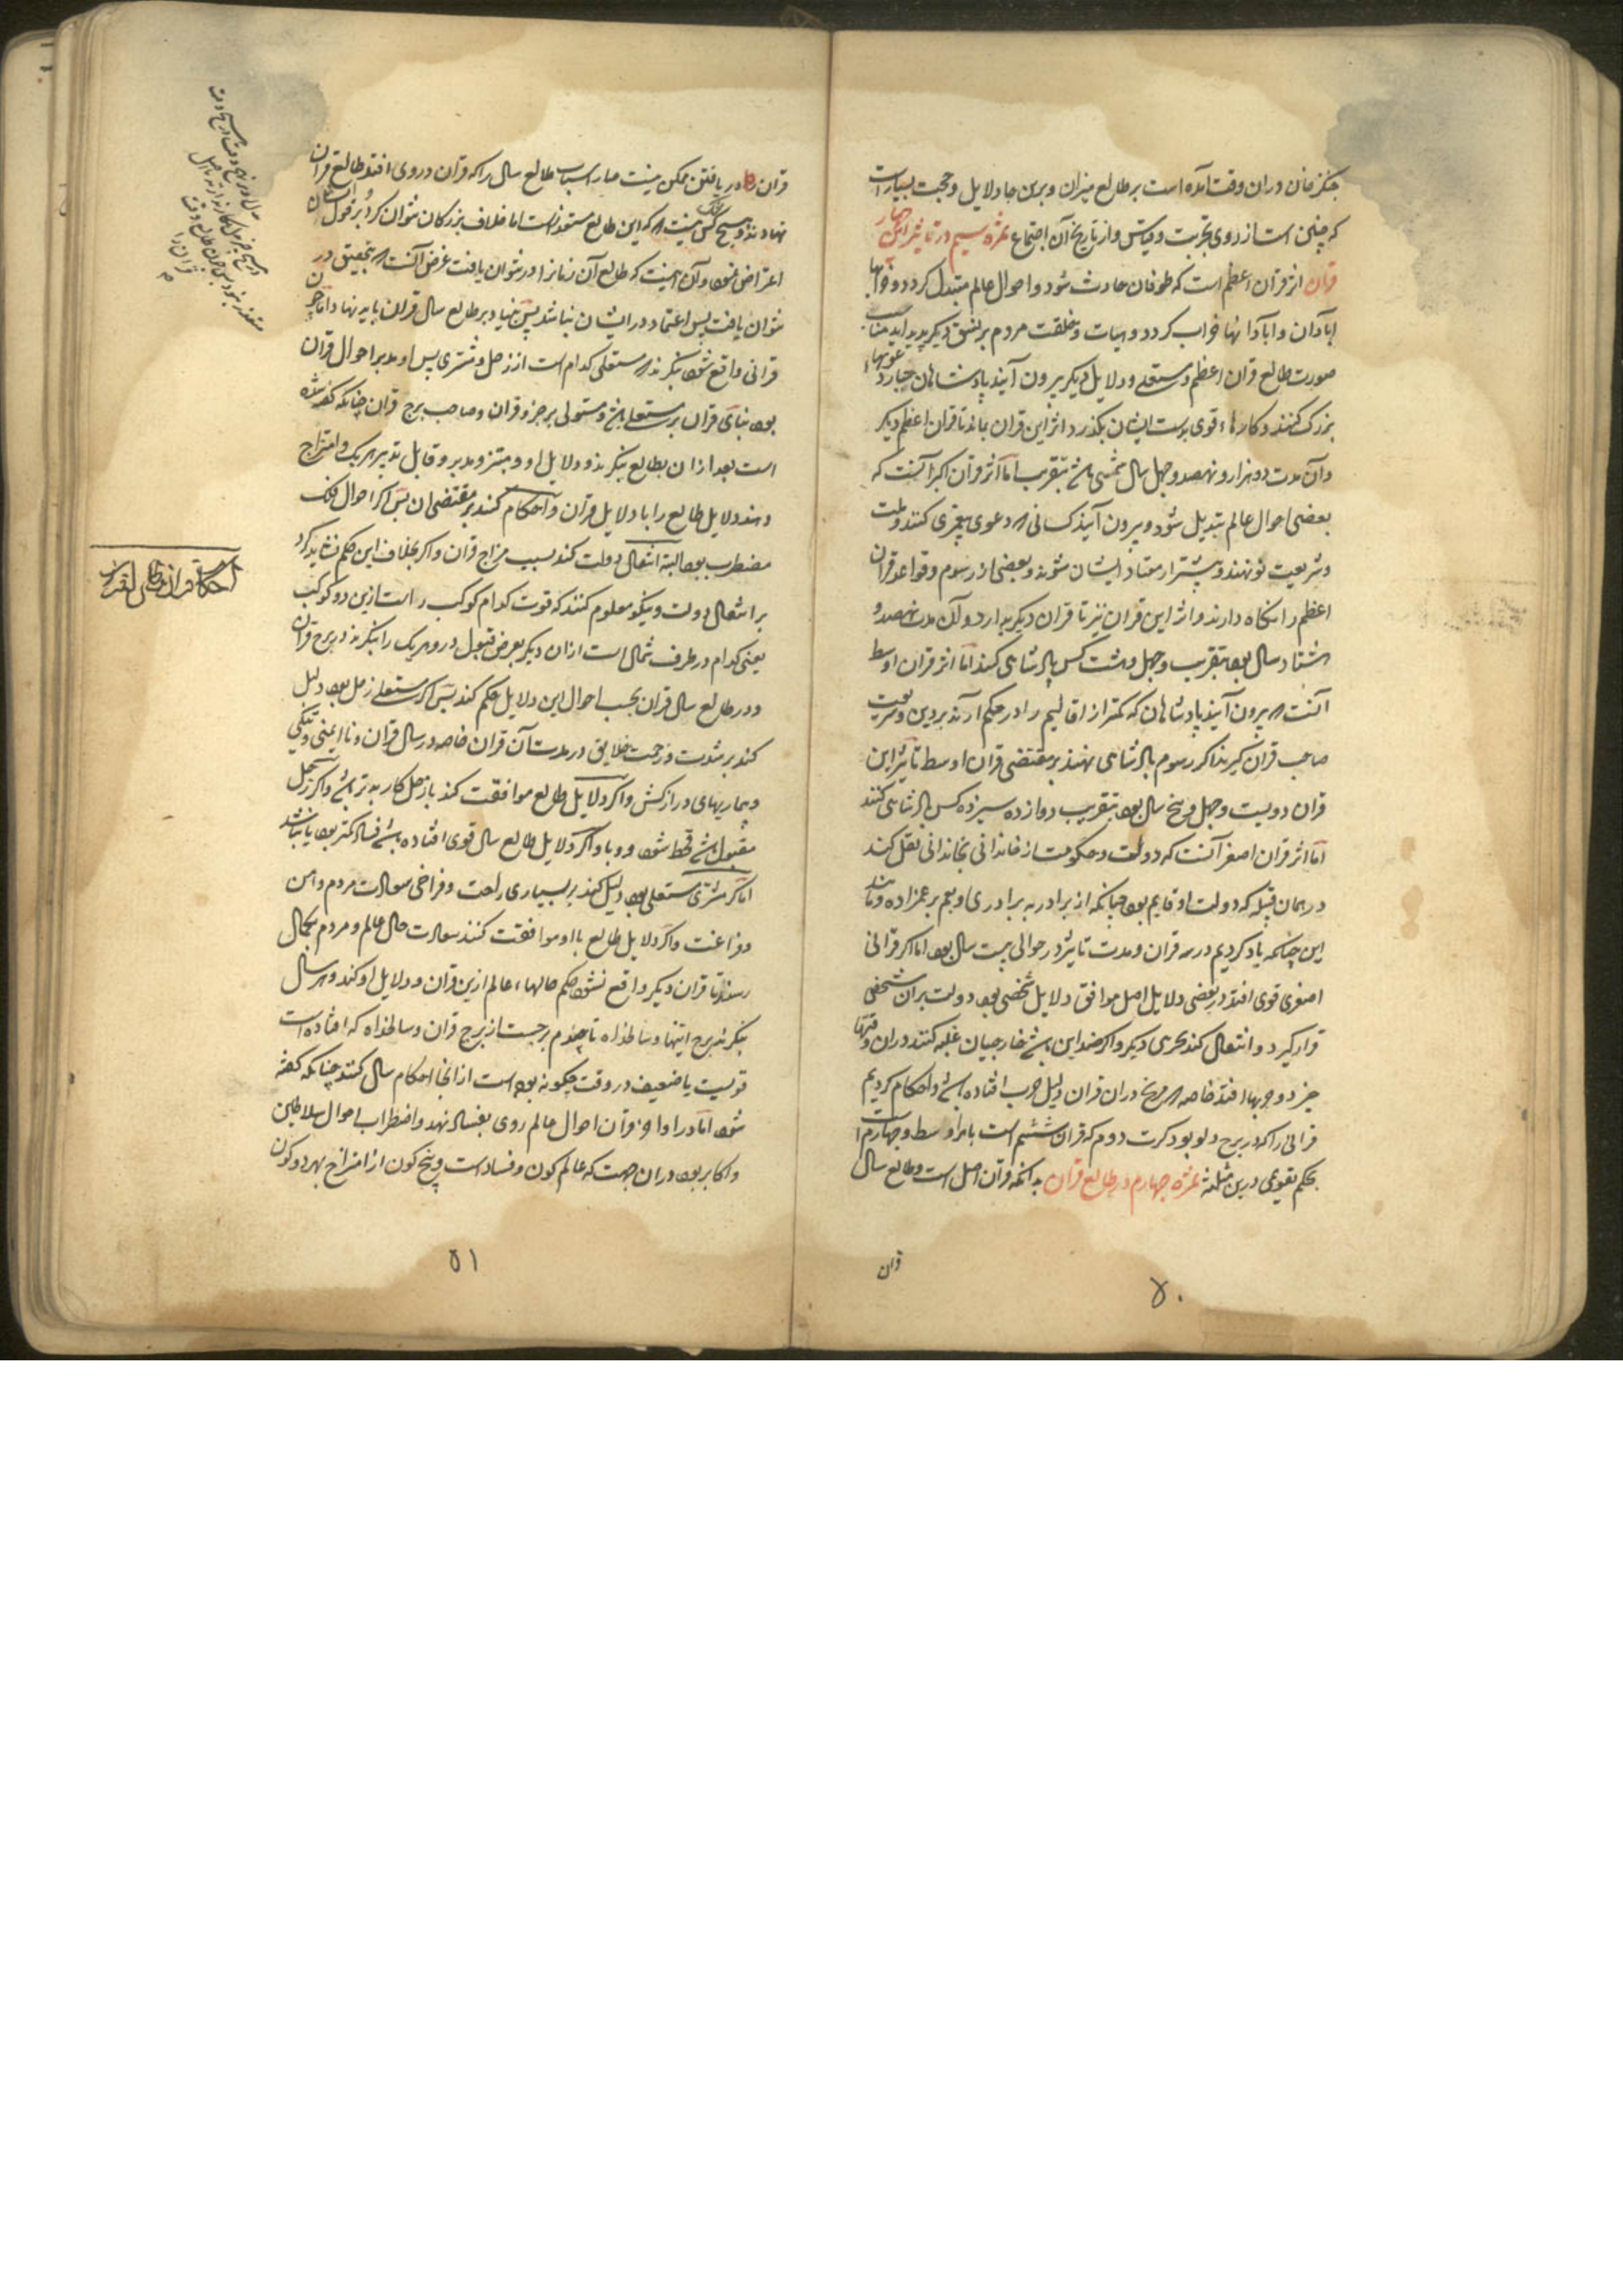 جنکزخان دران وقت آمده است بر طالع میزان و برین جا دلایل و حجت بسیار است
که چنین است از روی تجربت و قیاس و از تاریخ آن اجتماع ثمره سیم در تاثیر این چهار
قران اثر قران اعظم است که طوفان حادث شود و احوال عالم متبدل کردد و خرابها
ابادان و ابادانها خراب کردد و هیات و خلقت مردم بر نسق دیکر پدید اید مناسب
صورت طالع قران اعظم و مستعلی و دلایل دیکر بیرون آیند پادشاهان جبار و دعویهاء
بزرک کنند و کارهاء قوی بر دست ایشان بکذرد و اثر این قران بماند تا قران اعظم دیکر
و آن مدت دو هزار و نهصد و چهل سال شمسی باشد بتقریب اما اثر قران اکبر آنست که
بعضی احوال عالم تبدیل شود و بیرون آیند کسانی که دعوی پیغمبری کنند و ملت
و شریعت نو نهند و بیشتر از معتاد ایشان شوند و بعضی از رسوم و قواعد قران
اعظم را نکاه دارند و اثر این قران نیز تا قران دیکر بدارد و آن مدت نهصد و
هشتاد سال بود بتقریب و چهل و هشت کس پادشاهی کنند اما اثر قران اوسط
آنست که بیرون آیند پادشاهان که کمتر از اقالیم را در حکم آرند بر دین و شریعت
صاحب قران کیرند اکر رسوم پادشاهی نهند بر مقتضی قران اوسط تاثیر این
قران دویست و چهل و پنج سال بود بتقریب دوازده سیزده کس پادشاهی کنند
اما اثر قران اصغر آنست که دولت و حکومت از خاندانی بخاندانی نقل کند
در همان قبیله که دولت او قایم بود چنانکه از برادر به برادری او بعم بر عمزاده و مانند
این چنانکه یاد کردیم در سه قران و مدت تاثیر در حوالی بیست سال بود اما اکر قرانی
اصغری قوی افتد در بعضی دلایل اصل موافق دلایل شخصی بود دولت بران شخصی
قرار کیرد و انتقال کند بحری دیکر و اکر ضد این باشد خارجیان غلبه کنند دران وقتها
حرب و حربها افتد خاصه که مریخ دران قران دلیل حرب افتاده باشد و احکام کردیم
قرانی را که در برج دلو بود کرت دوم که قران ششم است بامر اوسط و چهارم است
بحکم تقویم درین مثلثه ثمره چهارم در طالع قران بدانکه قران اصل است و طالع سال
قران
۵۰
قران را در یافتن ممکن نیست صار اسباب طالع سال را که قران در وی افتد طالع قران
نهادند و هیچ کس نیست که این طالع مستعد است اما خلاف بزرکان نتوان کرد و بر قول ایشان
اعتراض نتوان و آن اینست که طالع آن زمانرا در نتوان یافت غرض آنست که بتحقیق در
نتوان یافت پس اعتماد در ایشان نباشد پس بنیاد بر طالع سال قران باید نهاد و اما چون
قرانی واقع شود بنکرند که مستعلی کدام است از زحل و مشتری پس او مدبر احوال قران
بود بنای قران بر مستعلی باشد و مستولی بر جزو قران و صاحب برج قران چنانکه کفته شده
است بعد ازان بطالع بنکرند و دلایل او و مبتز و مدبر و قابل تدبیر هر یک و امتزاج
دهند دلایل طالع را با دلایل قران و احکام کنند بر مقتضی ان پس اکر احوال فلک
مضطرب بود البته انتقال دولت کند بسبب مزاج قران و اکر بخلاف این حکم نشاید کرد
بر انتقال دولت و نیکو معلوم کنند که قوت کدام کوکب راست ازین دو کوکب
یعنی کدام در طرف شمال است ازان دیکر بعرض قبول در و هر یک را بنکرند در برج قران
و در طالع سال قران بحسب احوال این دلایل حکم کنند پس اکر مستعلی زحل بود دلیل
کند بر شدت و زحمت خلایق در مدت آن قران خاصه در سال قران و نا ایمنی و تنکی
و بیماریهای دراز کش و اکر دلایل طالع موافقت کند با زحل کار بتر باشد و اکر زحل
مقبول باشد قحط شود و وبا و اکر دلایل طالع سال قوی افتاده باشد فساد کمتر بود یا نباشد
اما اکر مشتری مستعلی بود دلیل کند بر بسیاری راحت و فراخی سعادت مردم و امن
و فراغت و اکر دلایل طالع با او موافقت کنند سعادت حال عالم و مردم بکمال
رسد تا قران دیکر واقع نشود حکم حالهاء عالم ازین قران و دلایل او کند و هر سال
بنکرند برج انتها و سالخداه تا چندم برجست از برج قران و سالخداه که افتاده است
قویست یا ضعیف در وقت چکونه بوده است از انجا احکام سال کنند چنانکه کفته
شود اما در اواخر قران احوال عالم روی بفساد نهد و اضطراب احوال سلاطین
و اکابر بود دران جهت که عالم کون و فساد است و هیچ کون از امتزاج بهر دو کون
احکام قران از طالع القران
۵۱